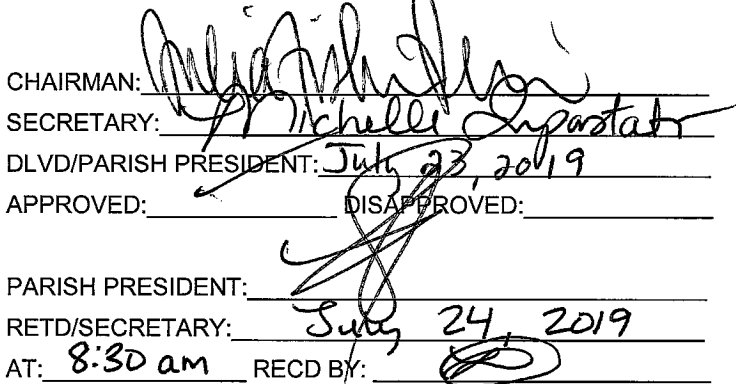 CHAIRMAN:
SECRETARY: Michelle Impastato
DLVD/PARISH PRESIDENT: July 23, 2019
APPROVED: ✓ DISAPPROVED:
PARISH PRESIDENT:
RETD/SECRETARY: July 24, 2019
AT: 8:30 am RECD BY: